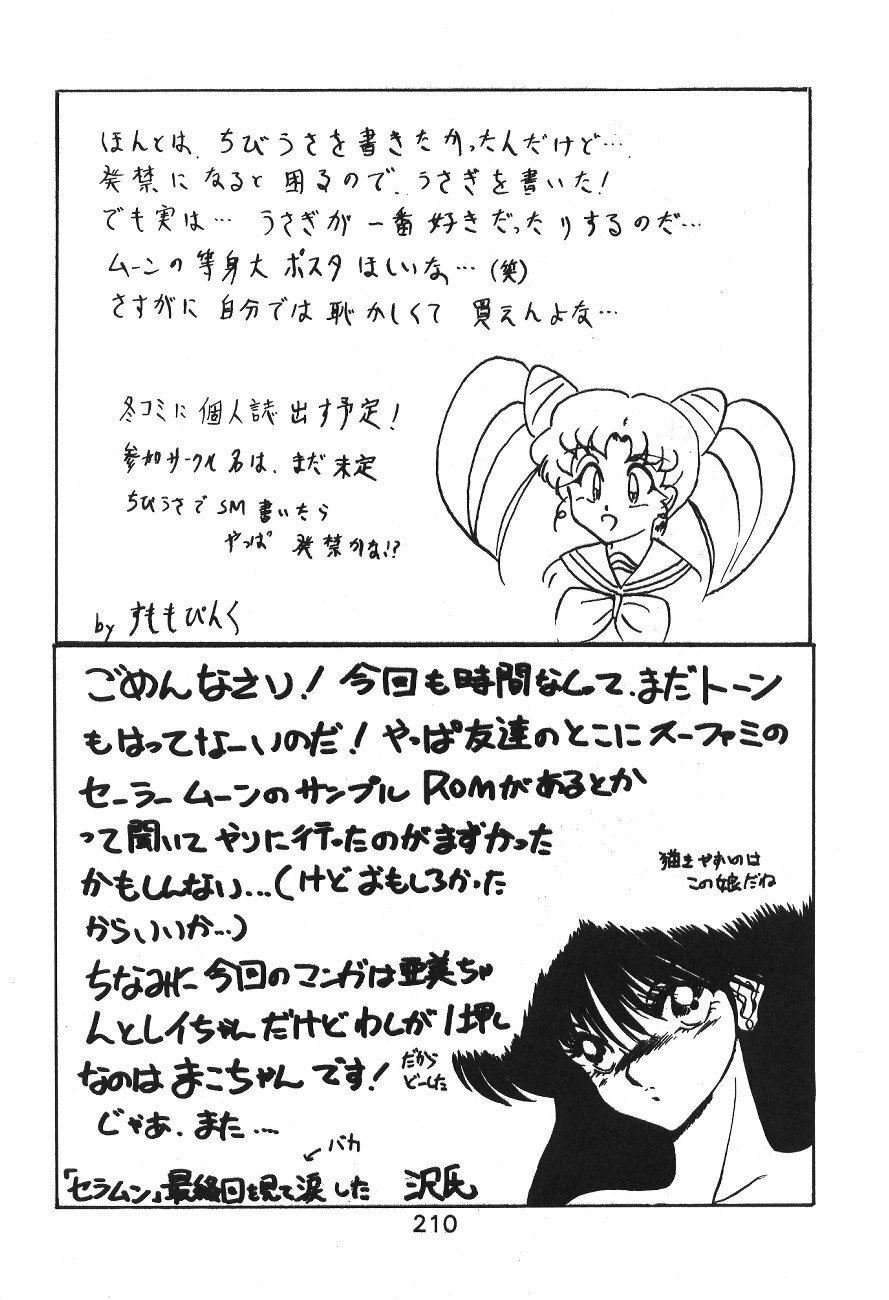 ほんとは、ちびうさを書きたかったんだけど…
発禁になると困るので、うさぎを書いた!
でも実は… うさぎが一番好きだったりするのだ…
ムーンの等身大ポスタほしいな…(笑)
さすがに自分では恥かしくて買えんよな…
冬コミに個人誌出す予定!
参加サークル名は、まだ未定
ちびうさでSM書いたら
やっぱ発禁かな!?
by すももぴんく
ごめんなさい!今回も時間なくて、まだトーン
もはってなーいのだ!やっぱ友達のとこにスーファミの
セーラームーンのサンプルROMがあるとか
って聞いてやりに行ったのがまずかった
かもしんない…(けどおもしろかった
からいいか…)
ちなみに今回のマンガは亜美ちゃ
んとレイちゃんだけどわしが1押し
なのはまこちゃんです!
だから
どーした
じゃあ、また…
バカ
「セラムン」最終回を見て涙した 沢氏
描きやすいのは
この娘だね
210